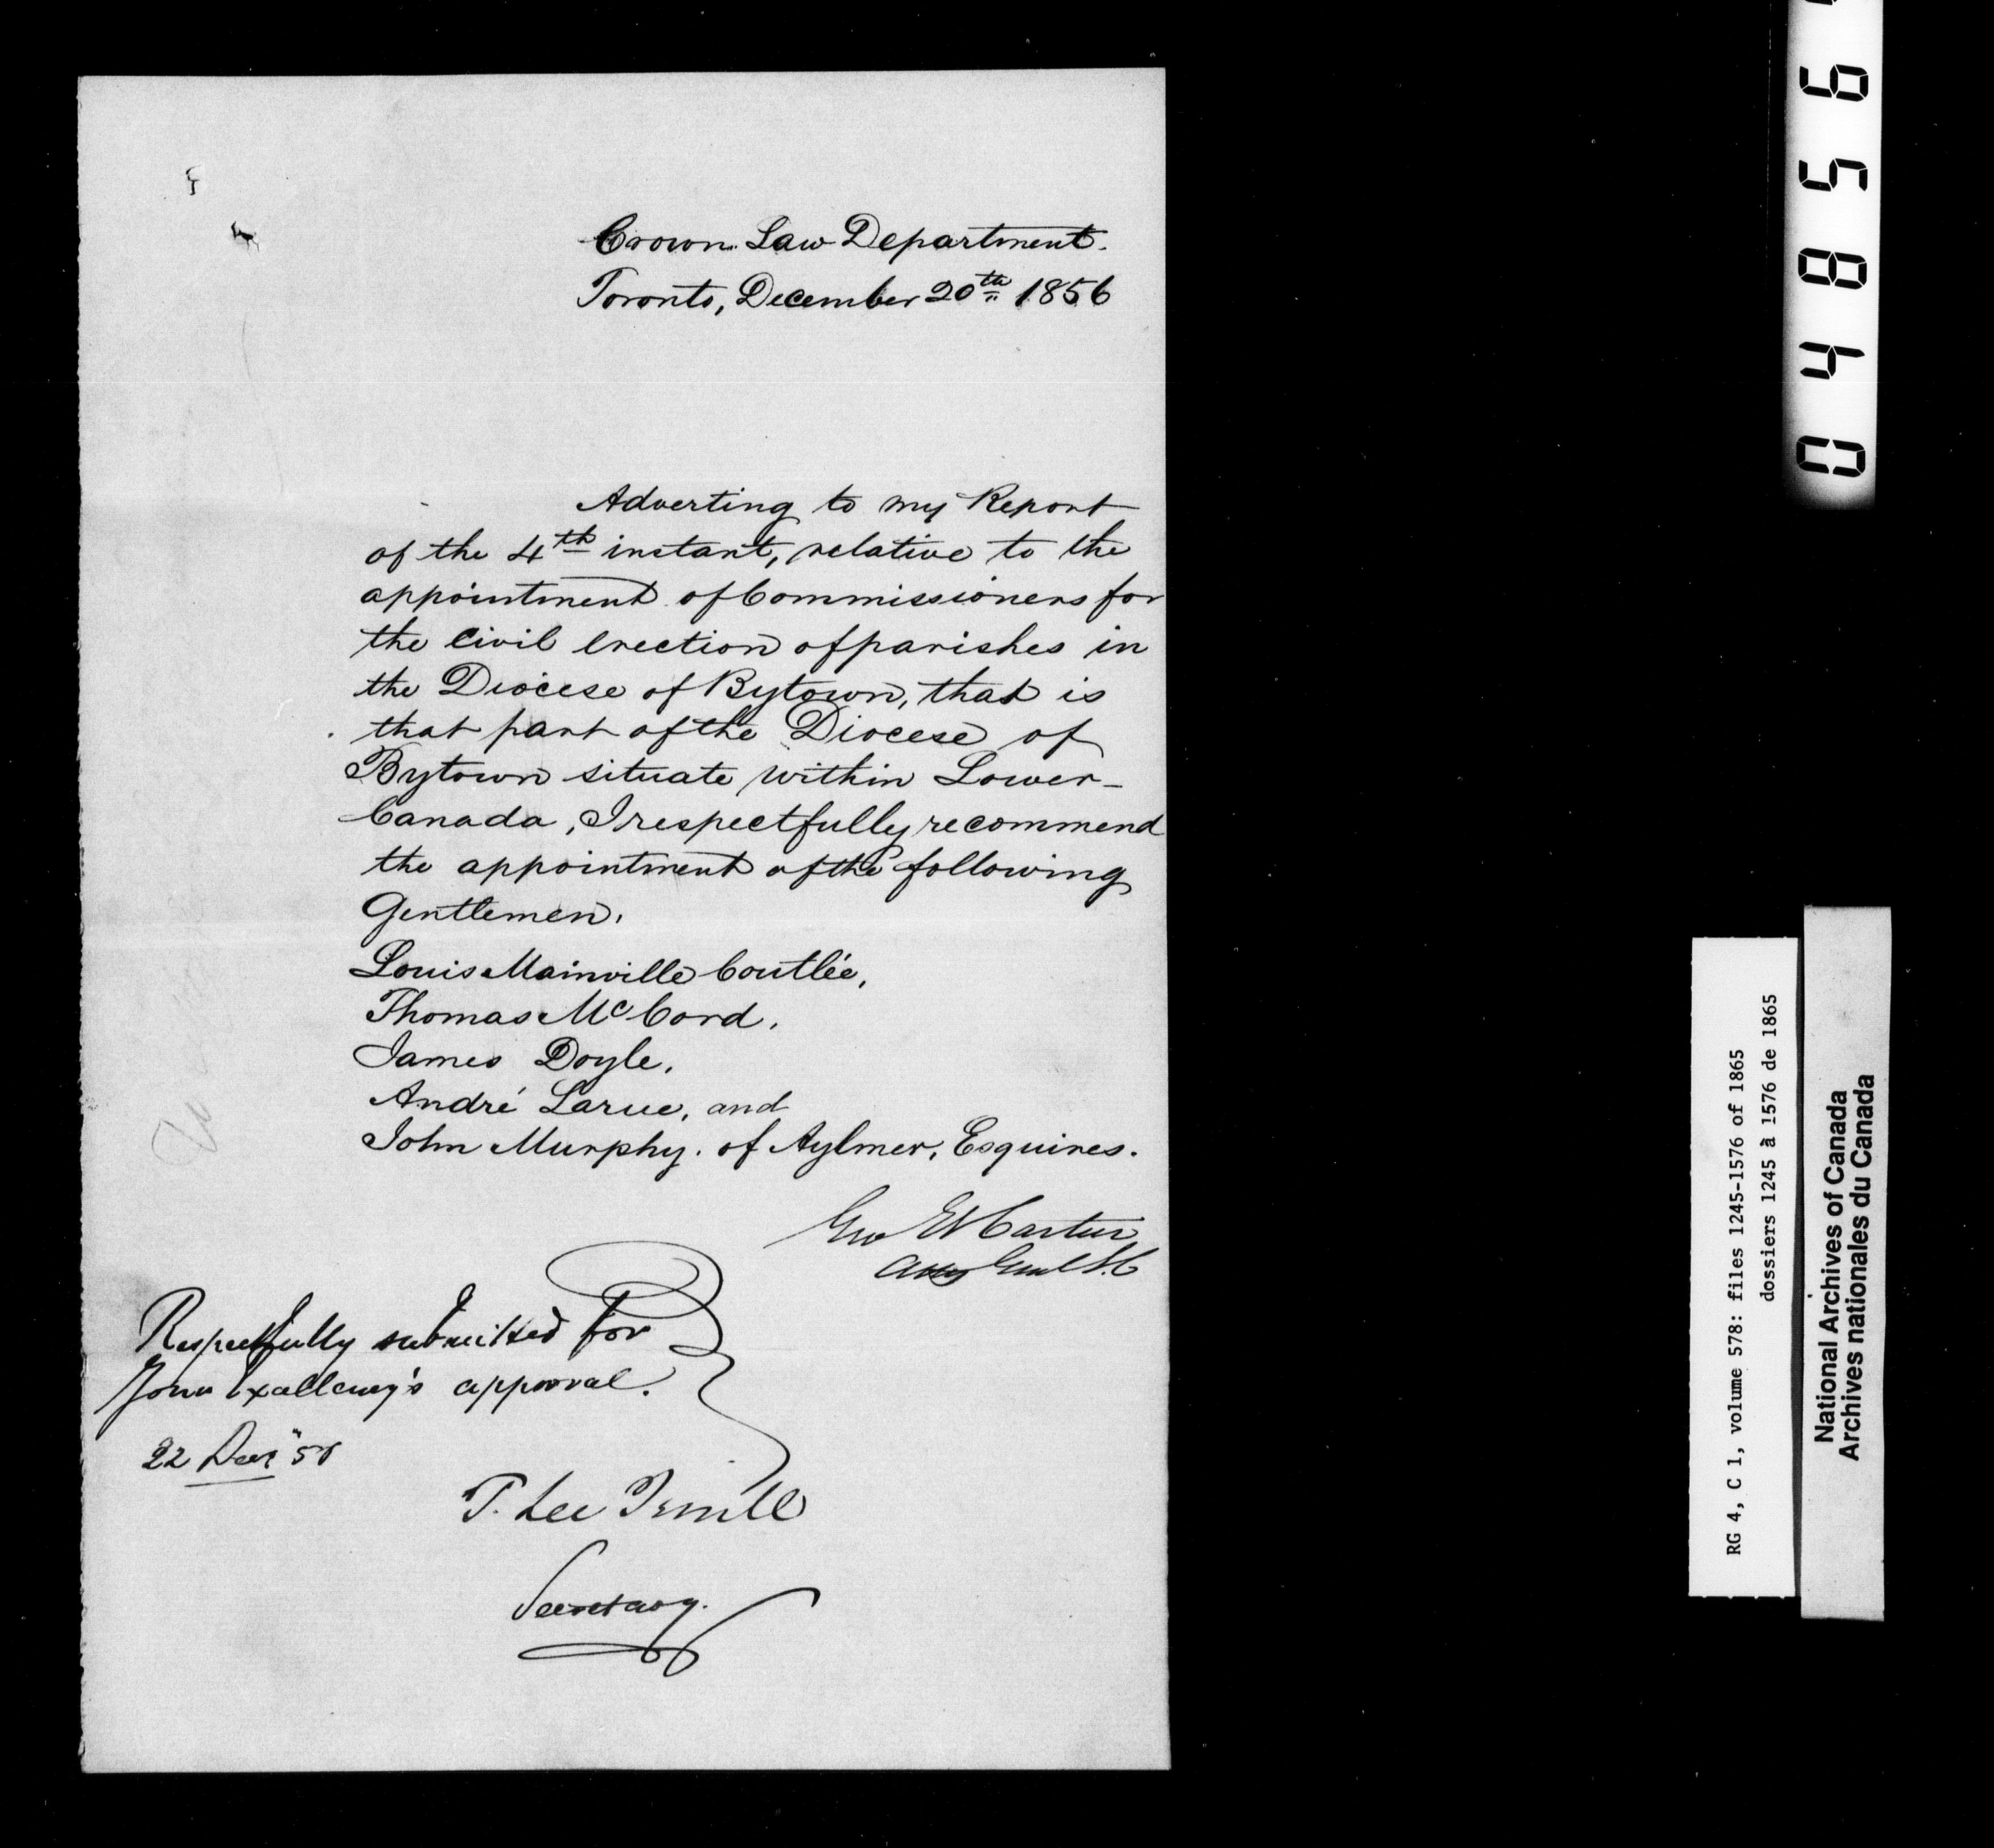 Crown Law Department.
Toronto, December 20th 1856
Adverting to my Report
of the 4th instant, relative to the
appointment of Commissioners for
the Civil Erection of parishes in
the Diocese of Bytown, that is
that part of the Diocese of
Bytown situate within Lower-
Canada, I respectfully recommend
the appointment of the following
Gentlemen.
Louis Mainville Coutlée,
Thomas McCord,
James Doyle,
André Larue, and
John Murphy. of Aylmer, Esquires.
Geo Et Cartier
Atty Genl L.C
Respectfully submitted for
Your Excellency's approval.
22 Decr
T. Lee Terrill
Secretary.
04856
RG 4, C 1, volume 578: files 1245-1576 of 1865
dossiers 1245 à 1576 de 1865
National Archives of Canada
Archives nationales du Canada